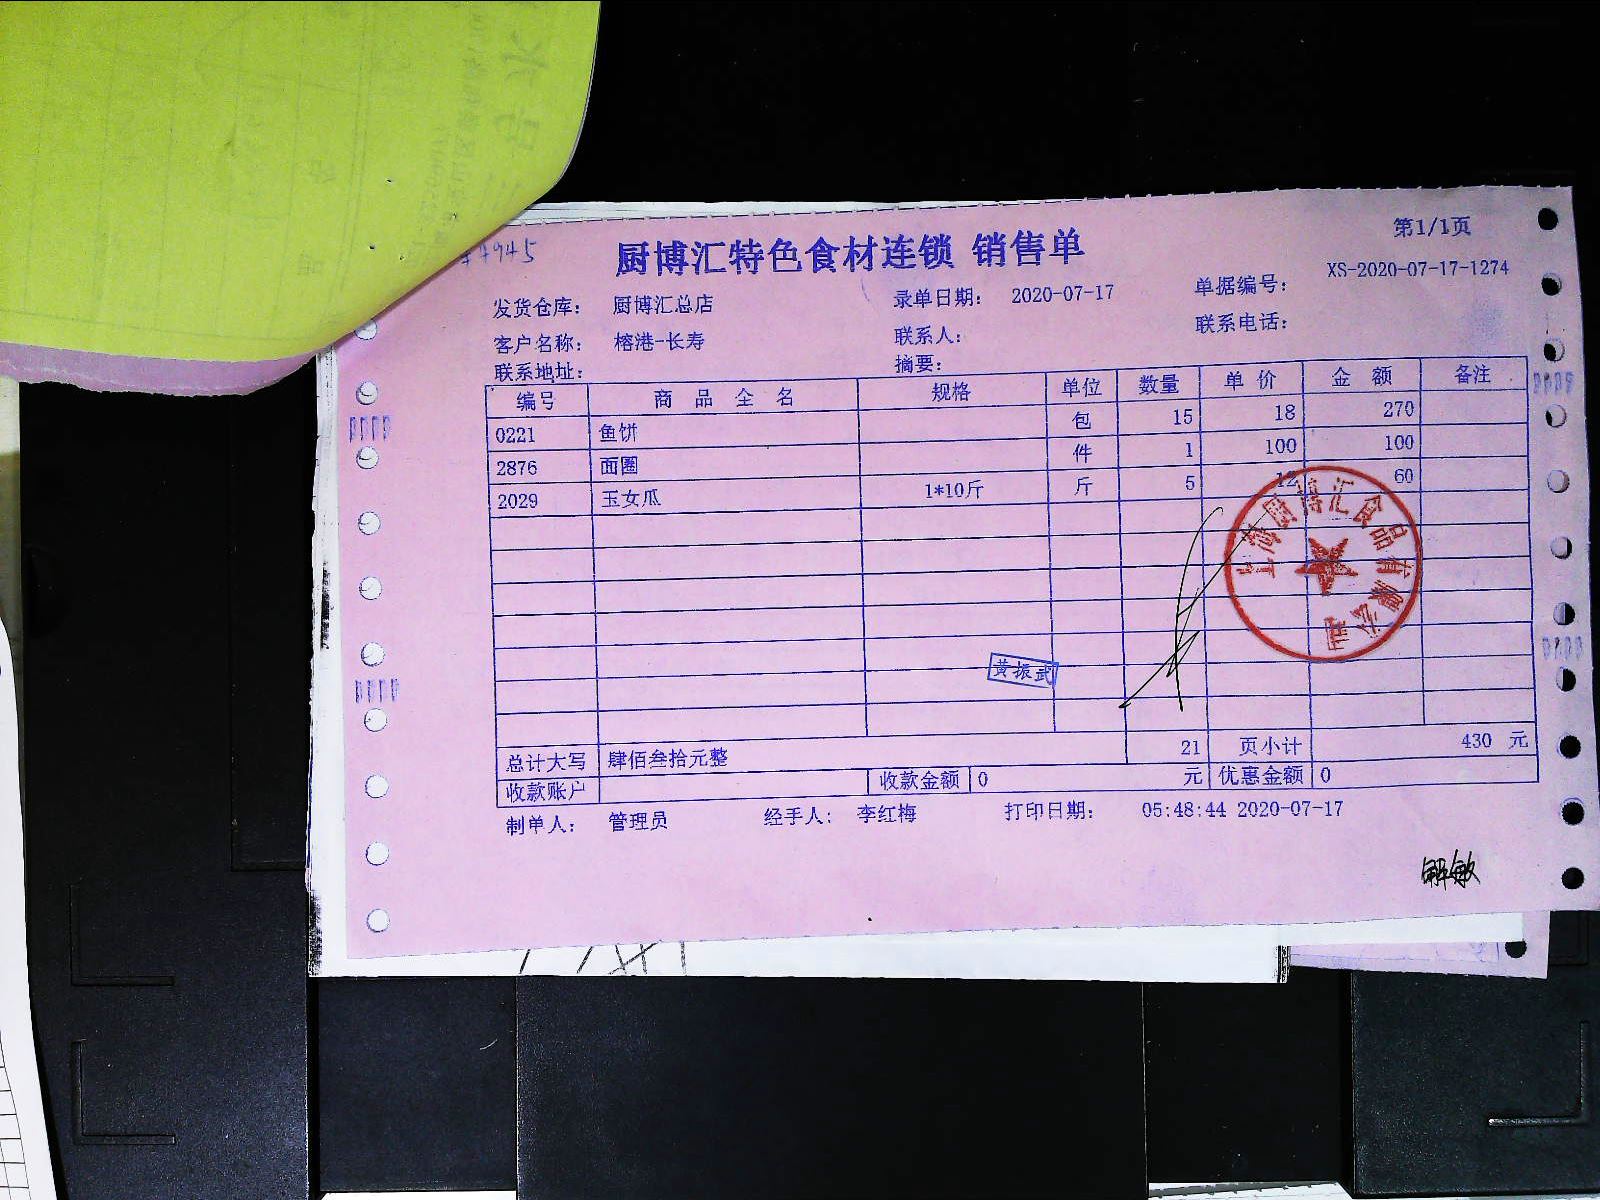 第1/1页
厨博汇特色食材连锁 销售单
发货仓库： 厨博汇总店 录单日期： 2020-07-17 单据编号： XS-2020-07-17-1274
客户名称： 榕港-长寿 联系人： 联系电话：
联系地址： 摘要：
编号 商品全名 规格 单位 数量 单价 金额 备注
0221 鱼饼 包 15 18 270
2876 面圈 件 1 100 100
2029 玉女瓜 1*10斤 斤 5 12 60
上海厨博汇食品有限公司
黄振武
总计大写 肆佰叁拾元整 21 页小计 430 元
收款账户 收款金额 0 元 优惠金额 0
制单人： 管理员 经手人： 李红梅 打印日期： 05:48:44 2020-07-17
解敏